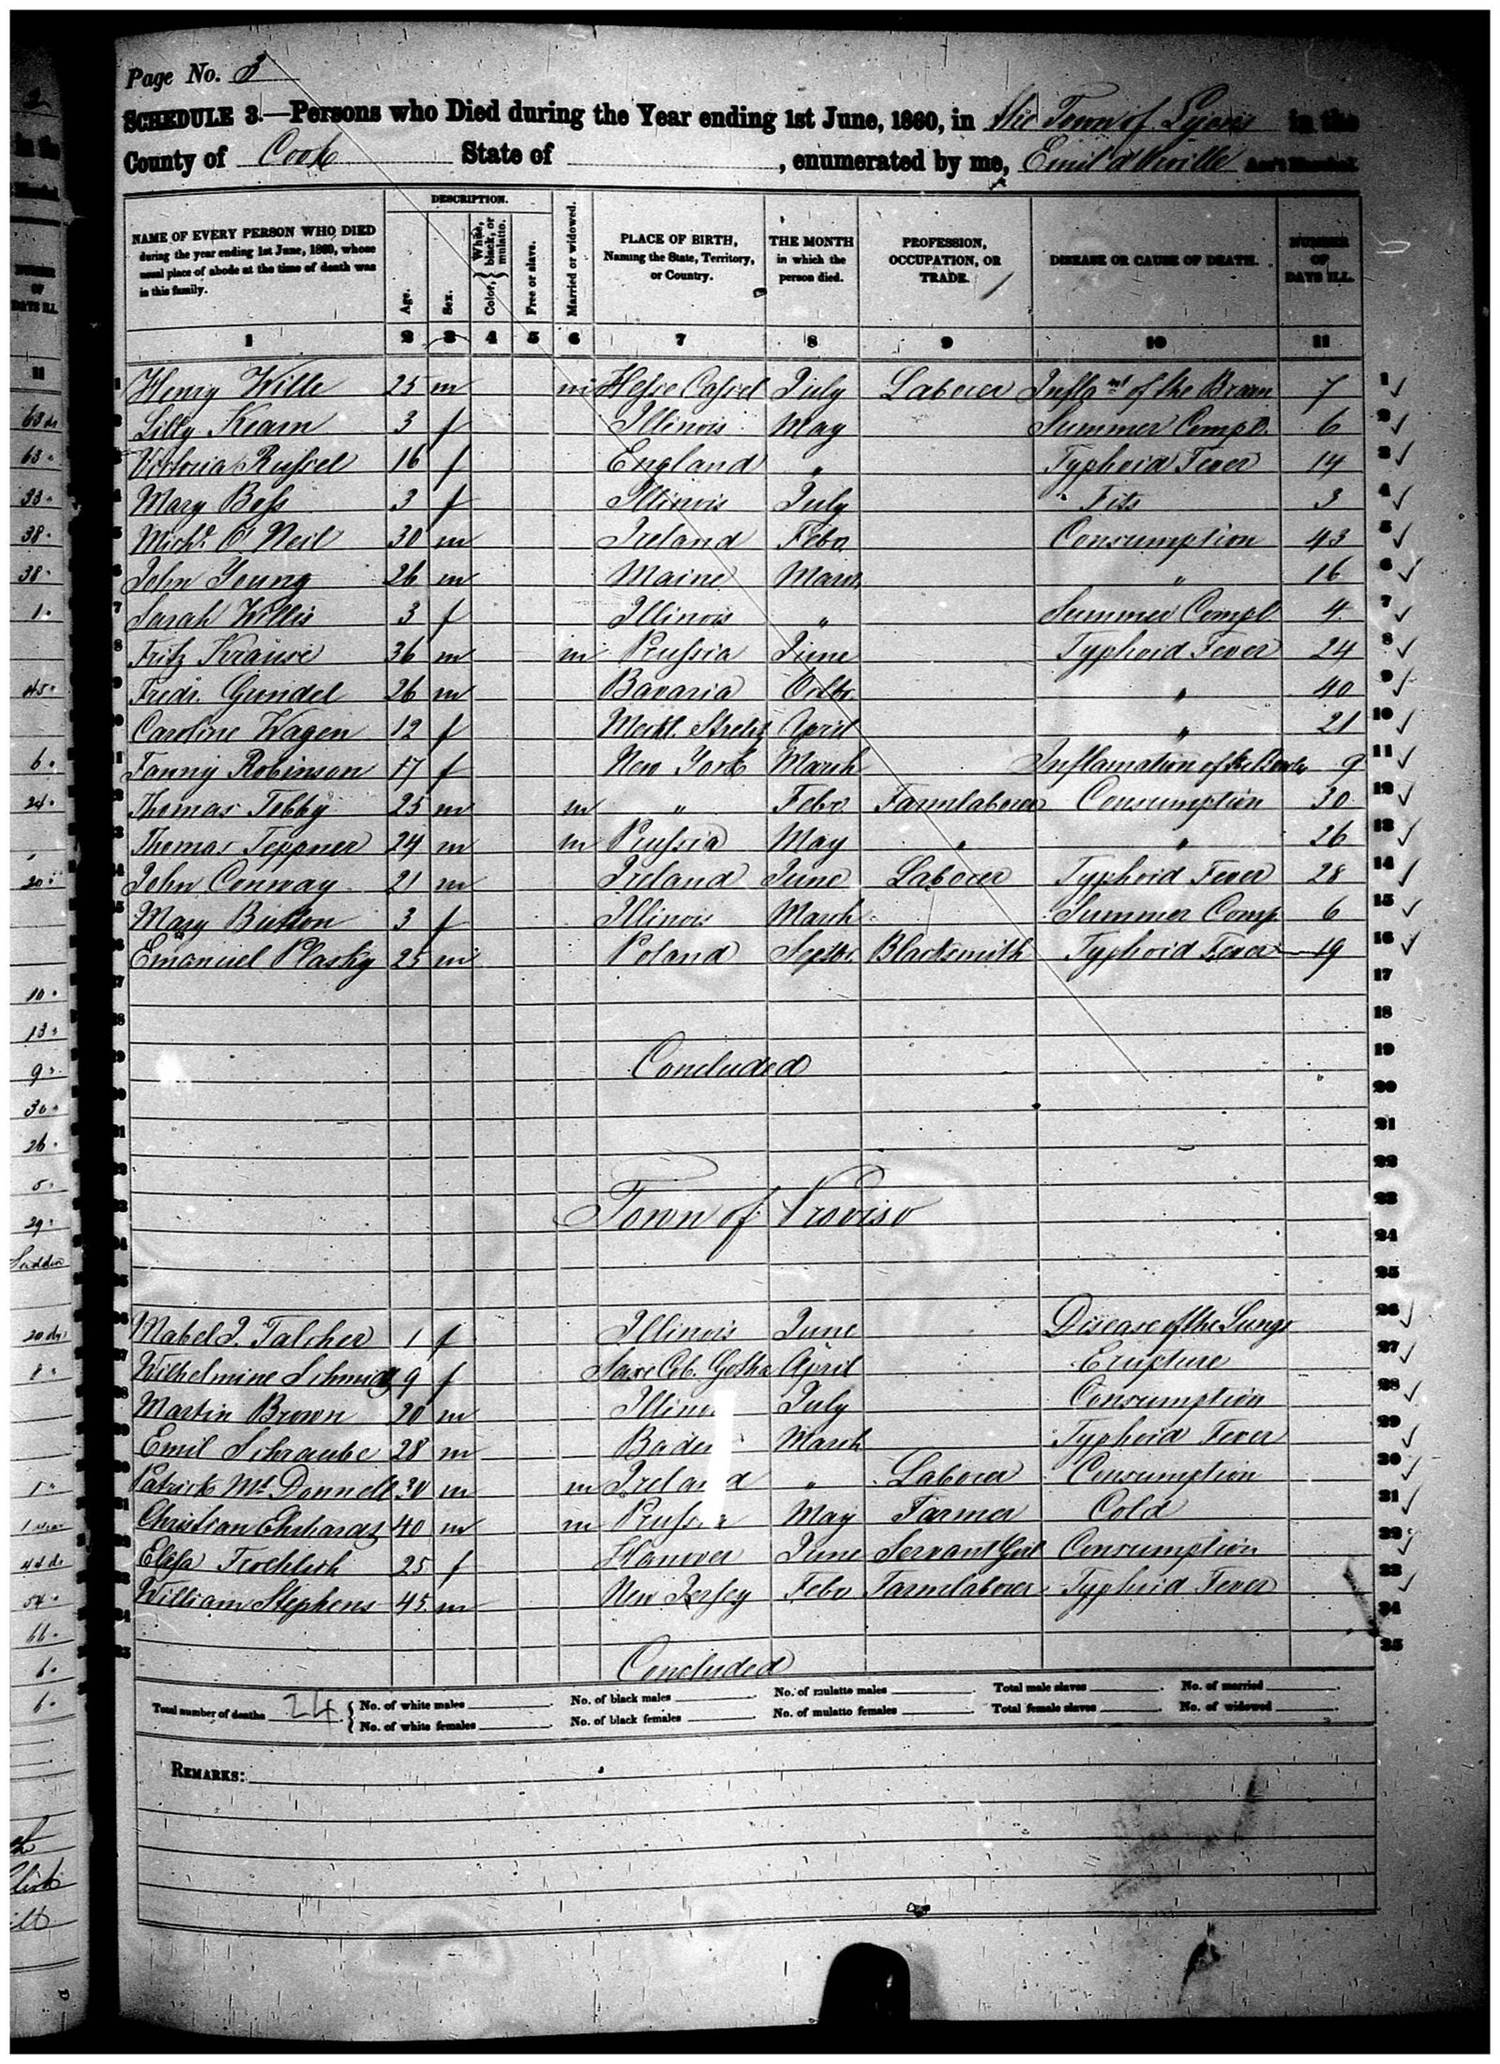 Page No. 3
SCHEDULE 3.—Persons who Died during the Year ending 1st June, 1860, in the Town of Lyons in the
County of Cook State of , enumerated by me, Emil Ass't Marshal.
DESCRIPTION.
NAME OF EVERY PERSON WHO DIED during the year ending 1st June, 1860, whose usual place of abode at the time of death was in this family.
Age.
Sex.
Color, { White, black, or mulatto.
Free or slave.
Married or widowed.
PLACE OF BIRTH, Naming the State, Territory, or Country.
THE MONTH in which the person died.
PROFESSION, OCCUPATION, OR TRADE.
DISEASE OR CAUSE OF DEATH.
NUMBER OF DAYS ILL.
1 2 3 4 5 6 7 8 9 10 11
1 Henry Wille 25 m m Hesse Cassel July Laborer Inflamt of the Brain 7 1
2 Lilly Kearn 3 f Illinois May Summer Compl. 6 2
3 Victoria Russel 16 f England " Typhoid Fever 14 3
4 Mary Bess 3 f Illinois July Fits 3 4
5 Michl. O'Neil 30 m Ireland Febr. Consumption 43 5
6 John Young 26 m Maine March " 16 6
7 Sarah Willis 3 f Illinois " Summer Compl. 4 7
8 Fritz Krause 36 m m Prussia June Typhoid Fever 24 8
9 Fredr. Gundel 26 m Bavaria Octbr. " 40 9
10 Caroline Wagen 12 f Meckl. Strelitz April " 21 10
11 Fanny Robinson 17 f New York March Inflamation of the Bowels 9 11
12 Thomas Tebby 25 m m " Febr. Farmlaborer Consumption 30 12
13 Thomas Teppner 24 m m Prussia May " " 26 13
14 John Conway 21 m Ireland June Laborer Typhoid Fever 28 14
15 Mary Button 3 f Illinois March Summer Comp. 6 15
16 Emanuel Plasky 25 m Poland Septbr. Blacksmith Typhoid Fever 19 16
17
18
19 Concluded 19
20
21
22
23 Town of Proviso 23
24
25
26 Mabel J. Talcher 1 f Illinois June Disease of the Lungs 26
27 Wilhelmine Schmidt 9 f Saxe Cob. Gotha April Erupture 27
28 Martin Brown 20 m Illinois July Consumption 28
29 Emil Schraube 28 m Baden March Typhoid Fever 29
30 Patrick Mc Donnell 30 m m Ireland " Laborer Consumption 30
31 Christian Ehrhardt 40 m m Prussia May Farmer Cold 31
32 Elisa Froehlich 25 f Hanover June Servant Girl Consumption 32
33 William Stephens 45 m New Jersey Febr. Farmlaborer Typhoid Fever 33
34
35 Concluded 35
Total number of deaths 24 { No. of white males . No. of black males . No. of mulatto males . Total male slaves . No. of married .
No. of white females . No. of black females . No. of mulatto females . Total female slaves . No. of widowed .
REMARKS: